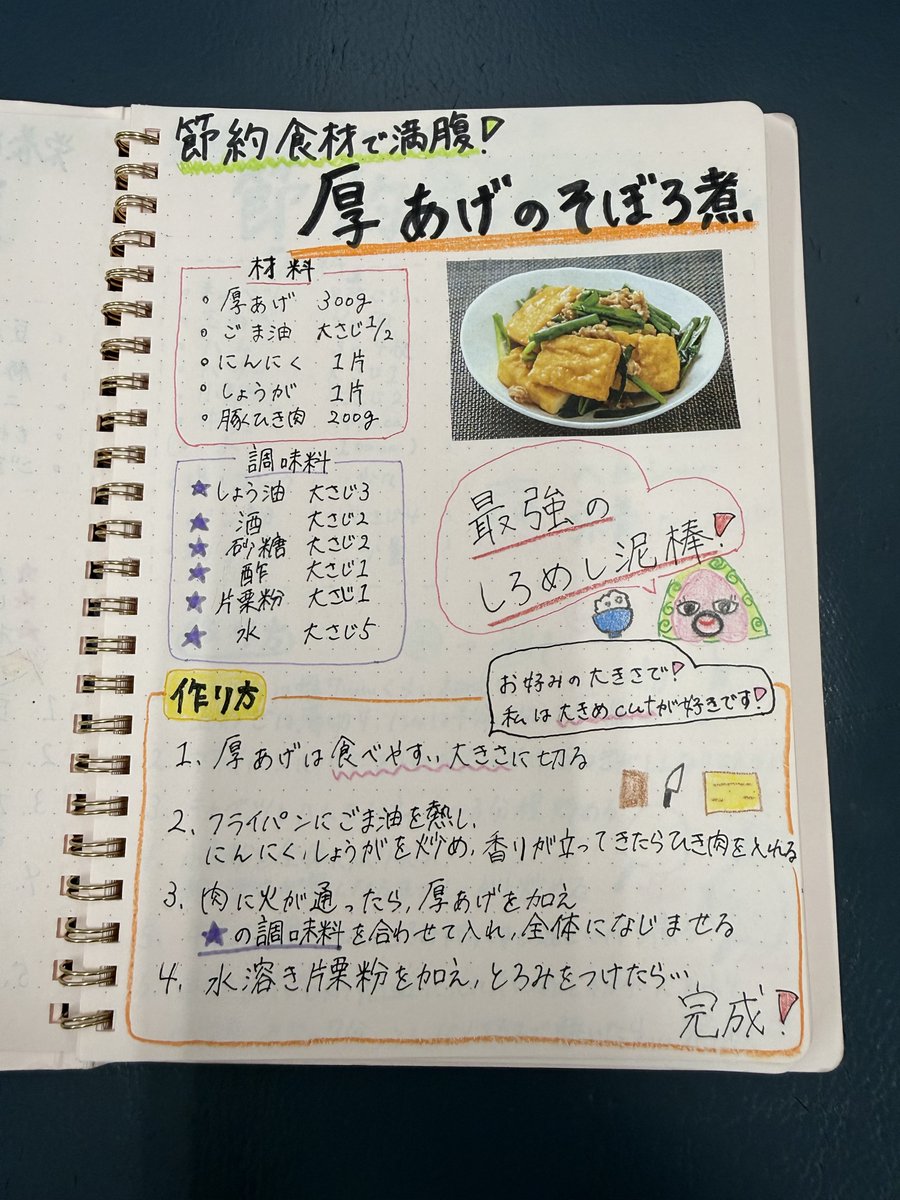 節約食材で満腹!
厚あげのそぼろ煮
材料
・厚あげ 300g
・ごま油 大さじ1/2
・にんにく 1片
・しょうが 1片
・豚ひき肉 200g
調味料
★しょう油 大さじ3
★酒 大さじ2
★砂糖 大さじ2
★酢 大さじ1
★片栗粉 大さじ1
★水 大さじ5
最強の
しろめし泥棒!
作り方
お好みの大きさで!
私は大きめcutが好きです!
1. 厚あげは食べやすい大きさに切る
2. フライパンにごま油を熱し、
にんにく、しょうがを炒め、香りが立ってきたらひき肉を入れる
3. 肉に火が通ったら、厚あげを加え
★の調味料を合わせて入れ、全体になじませる
4. 水溶き片栗粉を加え、とろみをつけたら…
完成!